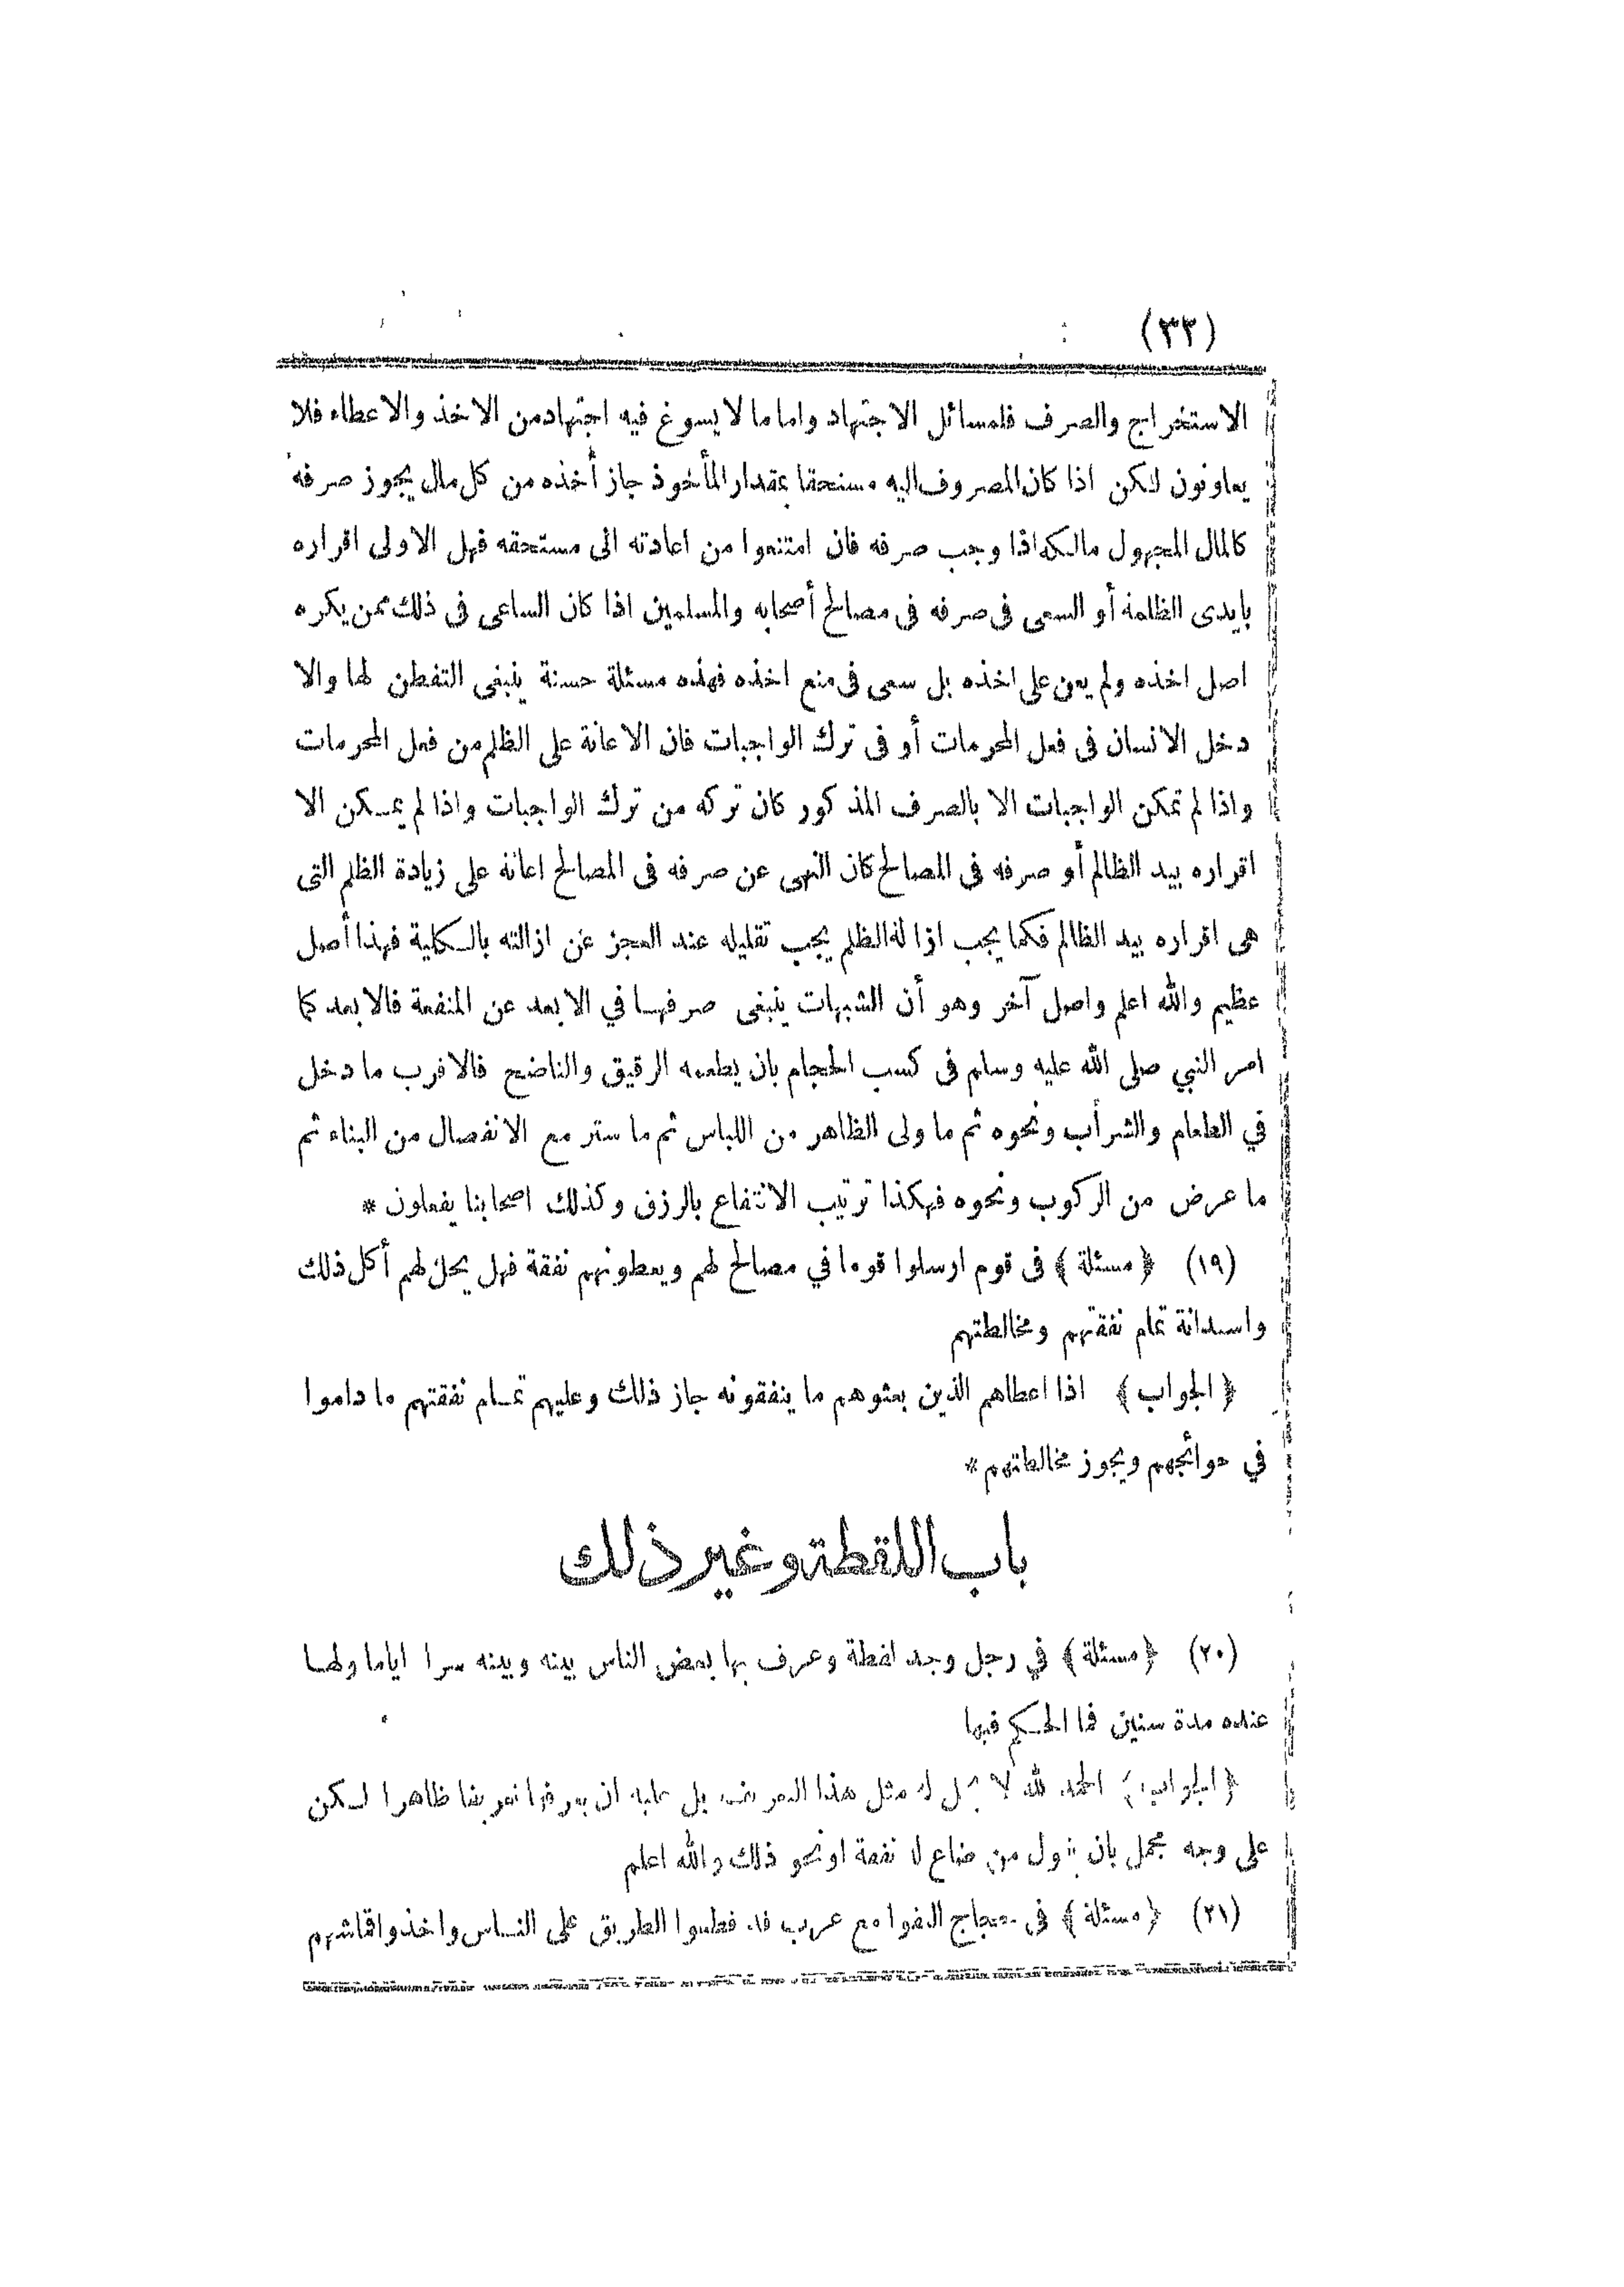 (٣٣)
الاستخراج والصرف فلمسائل الاجتهاد واما ما لا يسوغ فيه اجتهاد من الاخذ والاعطاء فلا
يعاونون لكن اذا كان المصروف اليه مستحقا بمقدار المأخوذ جاز أخذه من كل مال يجوز صرفه
كالمال المجهول مالكه اذا وجب صرفه فان امتنعوا من اعادته الى مستحقه فهل الاولى اقراره
بايدى الظلمة أو السعى فى صرفه فى مصالح أصحابه والمسلمين اذا كان الساعى فى ذلك ممن يكره
اصل اخذه ولم يعن على اخذه بل سعى فى منع اخذه فهذه مسئلة حسنة ينبغى التفطن لها والا
دخل الانسان فى فعل المحرمات أو فى ترك الواجبات فان الاعانة على الظلم من فعل المحرمات
واذا لم تمكن الواجبات الا بالصرف المذكور كان تركه من ترك الواجبات واذا لم يمكن الا
اقراره بيد الظالم أو صرفه فى المصالح كان النهى عن صرفه فى المصالح اعانة على زيادة الظلم التى
هى اقراره بيد الظالم فكما يجب ازالة الظلم يجب تقليله عند العجز عن ازالته بالكلية فهذا أصل
عظيم والله اعلم واصل آخر وهو أن الشبهات ينبغى صرفها في الابعد عن المنفعة فالابعد كما
امر النبي صلى الله عليه وسلم فى كسب الحجام بان يطعمه الرقيق والناضح فالاقرب ما دخل
في الطعام والشراب ونحوه ثم ما ولى الظاهر من اللباس ثم ما ستر مع الانفصال من البناء ثم
ما عرض من الركوب ونحوه فهكذا ترتيب الانتفاع بالرزق وكذلك اصحابنا يفعلون *
(١٩) ﴿ مسئلة ﴾ فى قوم ارسلوا قوما في مصالح لهم ويعطونهم نفقة فهل يحل لهم أكل ذلك
واستدانة تمام نفقتهم ومخالطتهم
﴿ الجواب ﴾ اذا اعطاهم الذين بعثوهم ما ينفقونه جاز ذلك وعليهم تمام نفقتهم ما داموا
في حوائجهم ويجوز مخالطتهم *
باب اللقطة وغير ذلك
(٢٠) ﴿ مسئلة ﴾ في رجل وجد لقطة وعرف بها بعض الناس بينه وبينه سرا اياما ولها
عنده مدة سنين فما الحكم فيها
﴿ الجواب ﴾ الحمد لله لا يحل له مثل هذا التعريف بل عليه ان يعرفها تعريفا ظاهرا لكن
على وجه مجمل بان يقول من ضاع له نفقة او نحو ذلك والله اعلم
(٢١) ﴿ مسئلة ﴾ فى حجاج التقوا مع عرب قد قطعوا الطريق على الناس واخذوا قماشهم